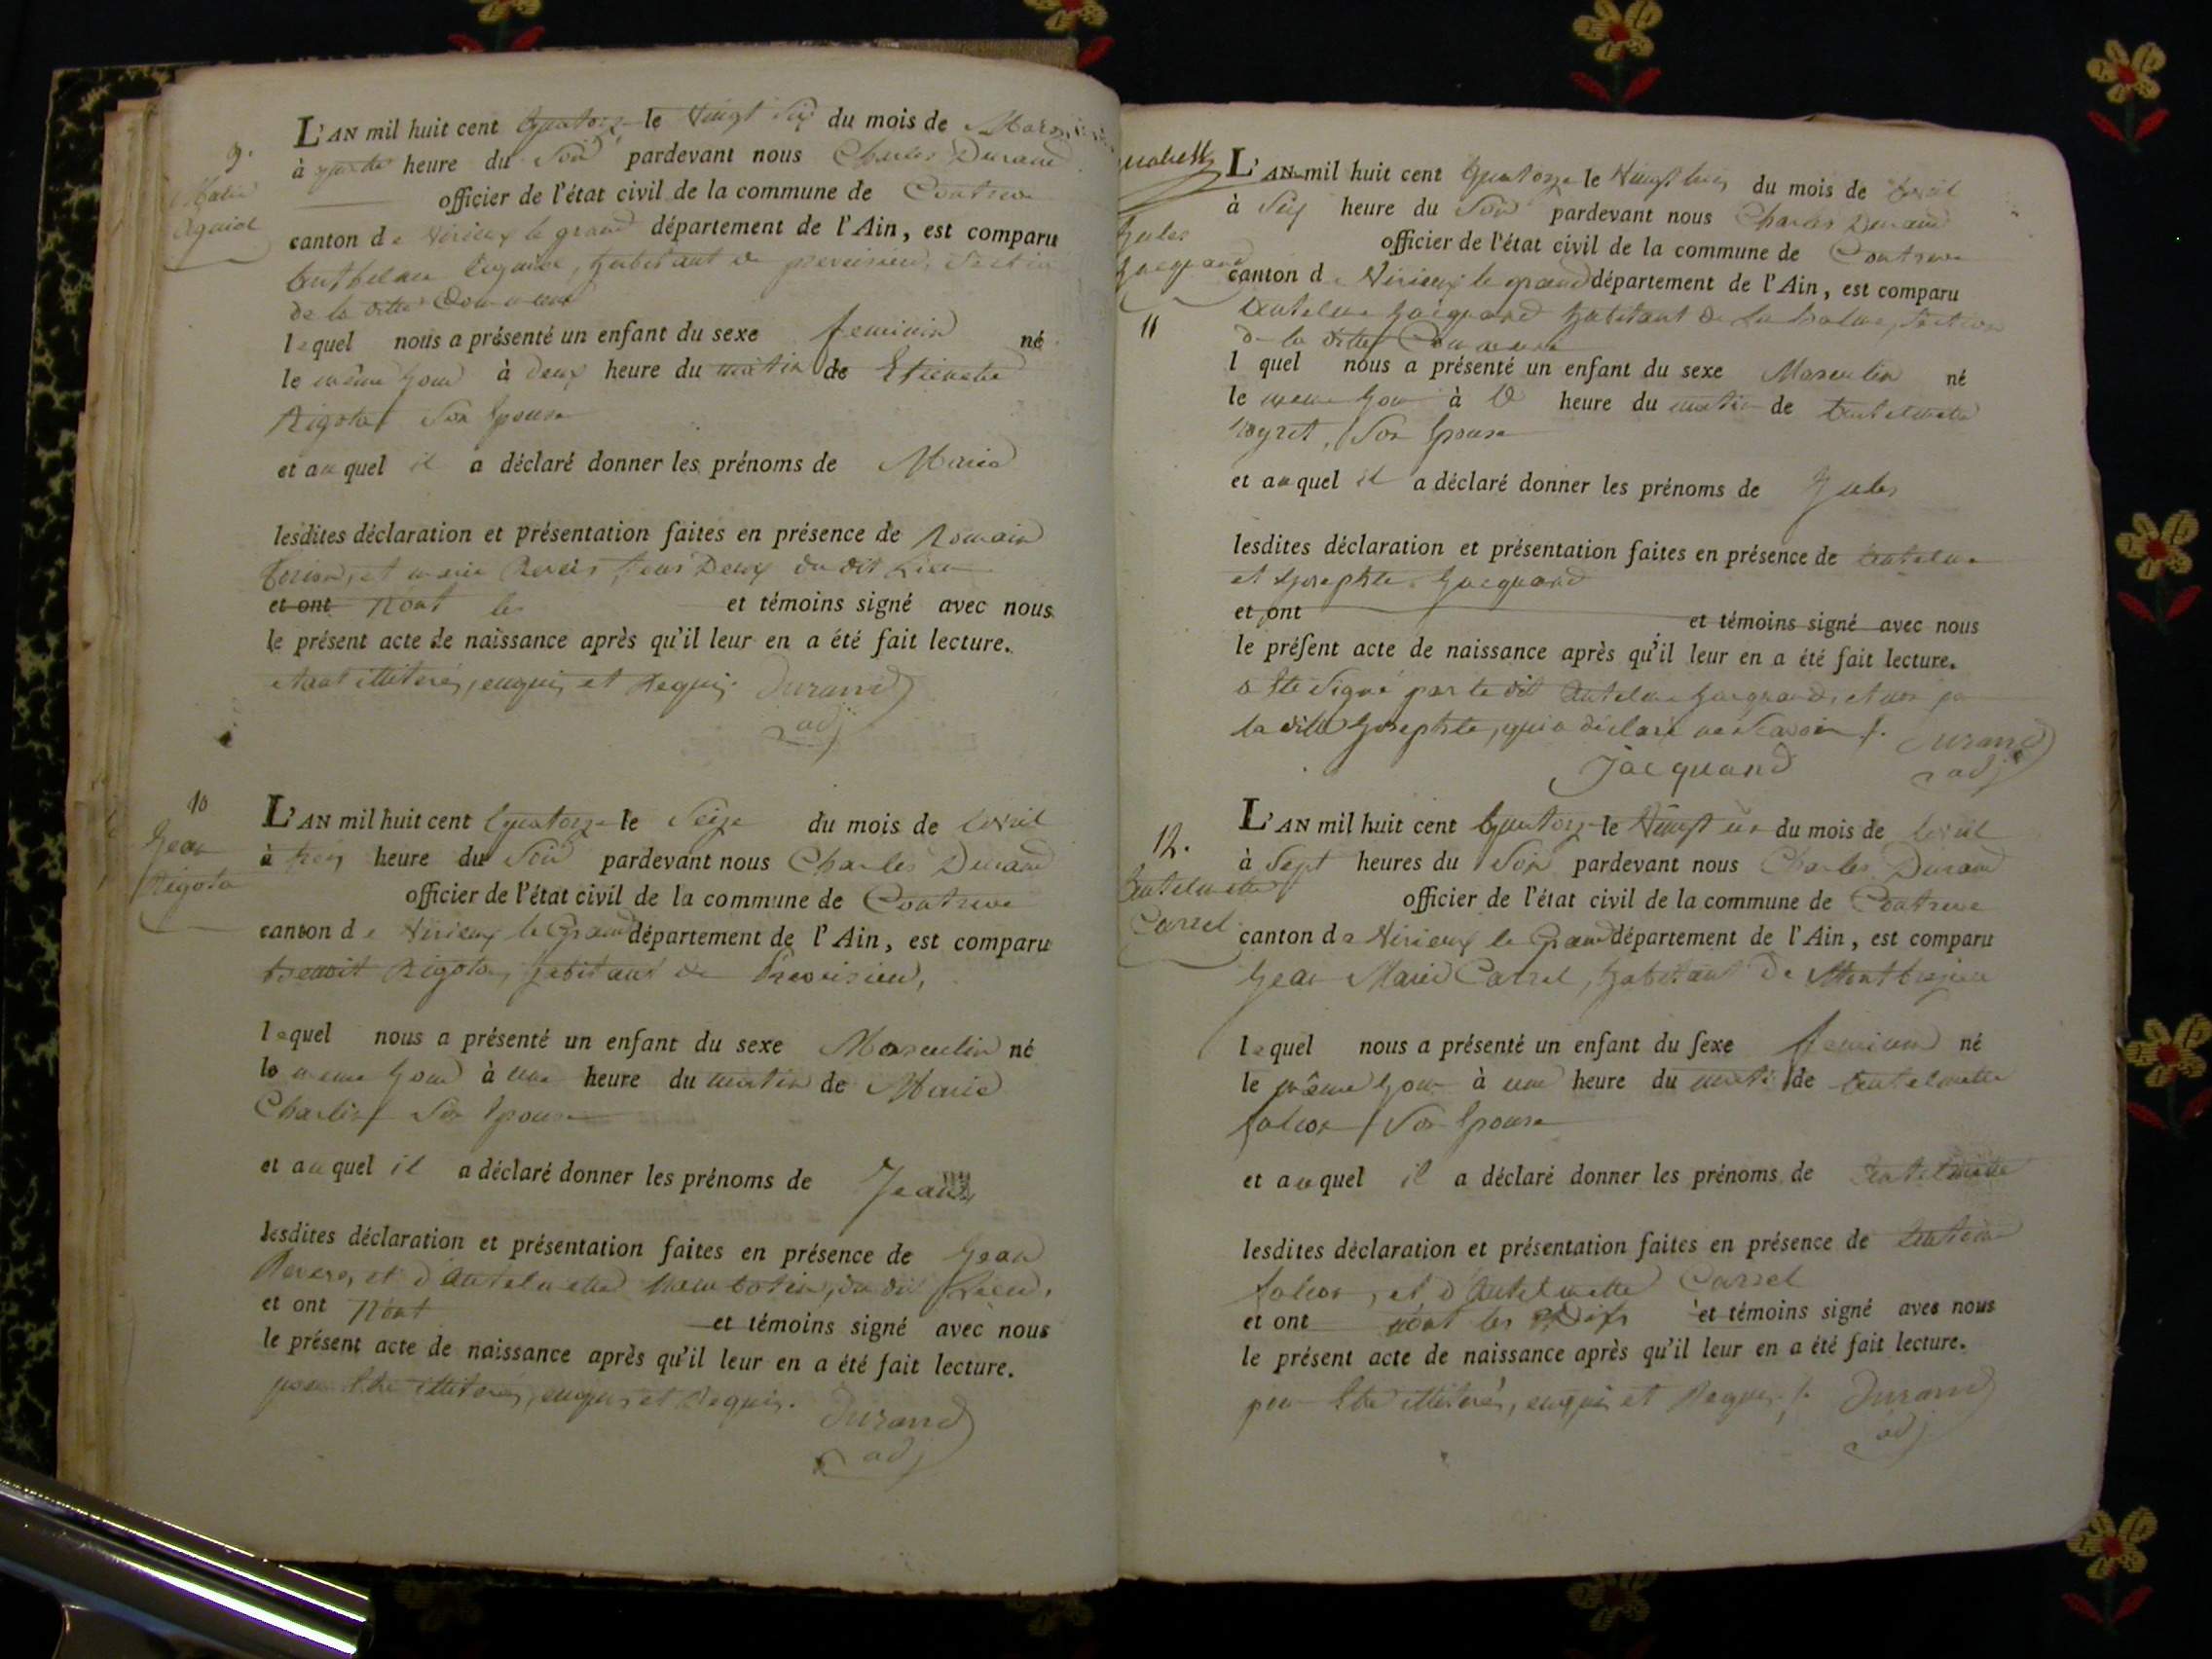 9.
Marie
Aguiol
L'AN mil huit cent quatorze le vingt six du mois de Mars
à heure du soir pardevant nous Charles Durand
officier de l'état civil de la commune de Contrevoz
canton de Virieux le grand département de l'Ain, est comparu
Anthelme habitant de Preveisieu, Section
de la ditte Commune
lequel nous a présenté un enfant du sexe feminin né
le même Jour à deux heure du matin de Etiennette
Rigotas Son Epouse
et auquel il a déclaré donner les prénoms de Marie
lesdites déclaration et présentation faites en présence de Romain
et tous Deux du dit Lieu
et ont Nont les et témoins signé avec nous
le présent acte de naissance après qu'il leur en a été fait lecture.
étant illiterés, enquis et Requis. Durand
adj
10
Jean
Rigotas
L'AN mil huit cent quatorze le Seize du mois de avril
à trois heure du Soir pardevant nous Charles Durand
officier de l'état civil de la commune de Contrevoz
canton de Virieux le Grand département de l'Ain, est comparu
Benoit Rigotas, habitant de Preveisieu,
lequel nous a présenté un enfant du sexe Masculin né
le meme Jour à une heure du matin de Marie
Charlin Son Epouse
et auquel il a déclaré donner les prénoms de Jean
lesdites déclaration et présentation faites en présence de Jean
et d'Antelmette du dit Lieu,
et ont Nont et témoins signé avec nous
le présent acte de naissance après qu'il leur en a été fait lecture.
pour être illiterés, enquis et Requis. Durand
adj
Jules
Jacquand
11
L'AN mil huit cent quatorze le Vingt du mois de avril
à Six heure du Soir pardevant nous Charles Durand
officier de l'état civil de la commune de Contrevoz
canton de Virieux le grand département de l'Ain, est comparu
Antelme Jacquand habitant de La balme, Section
de la ditte Commune
l quel nous a présenté un enfant du sexe Masculin né
le meme Jour à heure du matin de Antelmette
Son Epouse
et auquel il a déclaré donner les prénoms de Jules
lesdites déclaration et présentation faites en présence de Antelme
et Josephte Jacquand
et ont et témoins signé avec nous
le présent acte de naissance après qu'il leur en a été fait lecture.
a été Signé par le dit Antelme Jacquand, et non par
la ditte Josephte, qui a déclaré ne Savoir. Durand
Jacquand adj
12.
Antelmette
Carrel
L'AN mil huit cent quatorze le Vingt du mois de avril
à Sept heures du Soir pardevant nous Charles Durand
officier de l'état civil de la commune de Contrevoz
canton de Virieux le Grand département de l'Ain, est comparu
Jean Marie Carrel, habitant de
lequel nous a présenté un enfant du sexe feminin né
le même Jour à une heure du matin de Antelmette
falcoz Son Epouse
et auquel il a déclaré donner les prénoms de Antelmette
lesdites déclaration et présentation faites en présence de Antelme
falcoz, et d'Antelmette Carrel
et ont nont les et témoins signé avec nous
le présent acte de naissance après qu'il leur en a été fait lecture.
pour Etre illiterés, enquis et Requis. Durand
adj